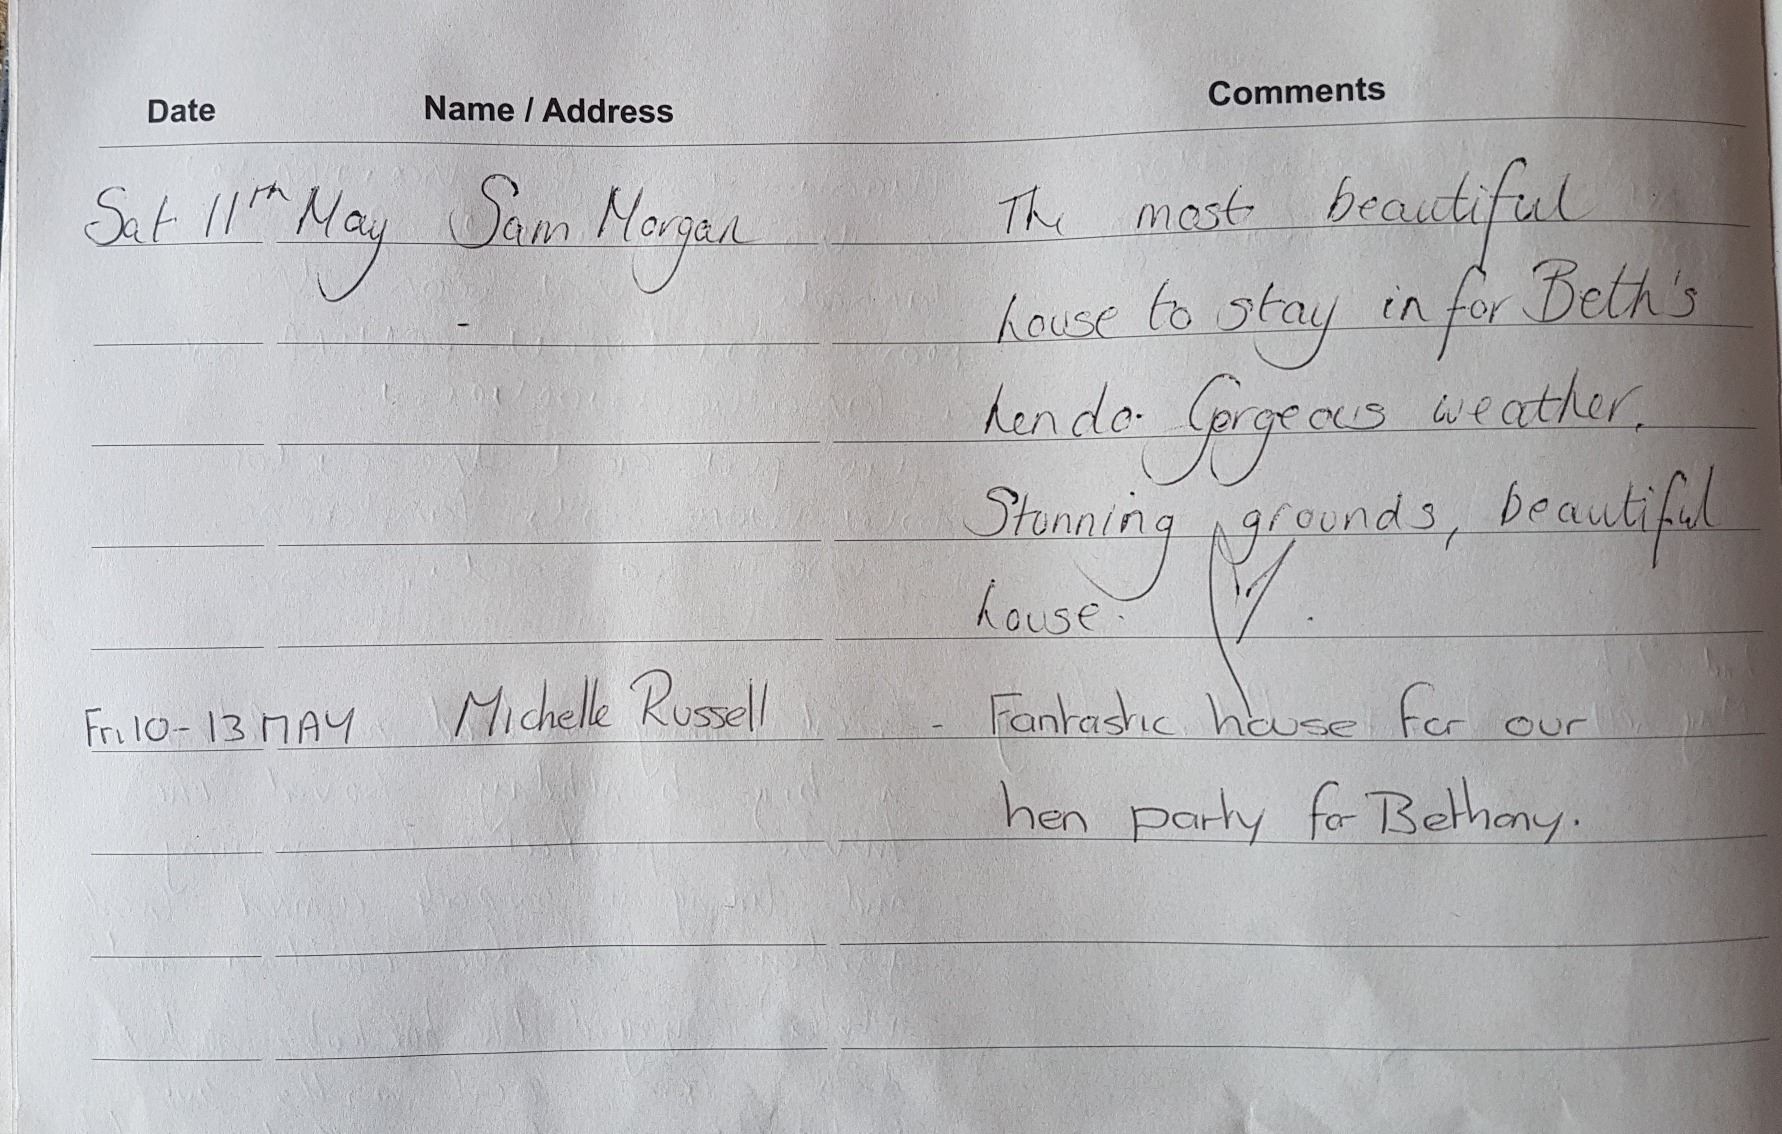 Date Name / Address Comments
Sat 11th May Sam Morgan The most beautiful
house to stay in for Beth's
hen do. Gorgeous weather.
Stunning grounds, beautiful
house.
Fri 10 - 13 MAY Michelle Russell - Fantastic house for our
hen party for Bethany.